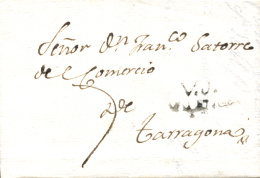 Señor Dn Franco Satorre
del Comercio
de
Tarragona